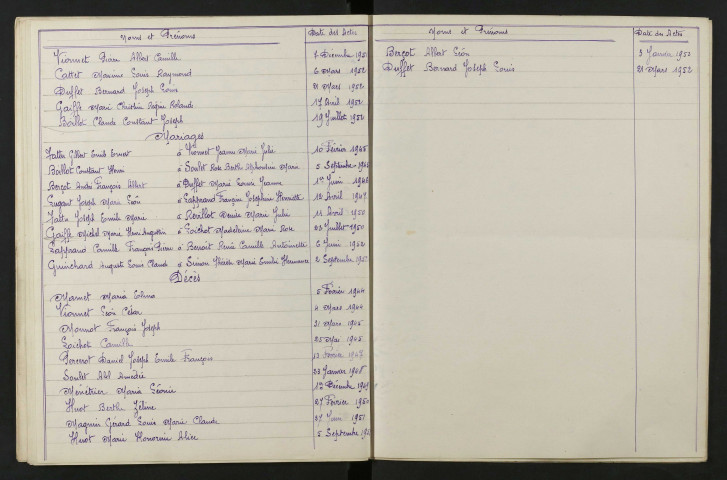 Noms et Prénoms Date des Actes
Vionnet Pierre Albert Camille 1 Décembre 1951
Cattet Maxime Louis Raymond 6 Mars 1952
Duffet Bernard Joseph Louis 21 Mars 1952
Gaiffe Marie Christine Régine Rolande 17 Avril 1952
Baillot Claude Constant Joseph 19 Juillet 1952
Mariages
Fattu Gilbert Emile Ernest à Viennet Jeanne Marie Julie 10 Février 1945
Baillot Constant Henri à Soulet Rose Berthe Alphonsine Marie 5 Septembre
Berçot André François Albert à Duffet Marie Louise Jeanne 1er Juin 1946
Lugant Joseph Marie Léon à Lapprand Françoise Joséphine Henriette 12 Avril 1947
Fattu Joseph Emile Marie à Revillot Denise Marie Julie 11 Avril 1950
Gaiffe Michel Marie Henri Augustin à Loichot Madeleine Marie Rose 23 Juillet 1950
Lapprand Camille François Pierre à Benoit Renée Camille Antoinette 6 Juin 1952
Guinchard Auguste Louis Claude à Simon Marie Emilie Hermance 2 Septembre
Décès
Mamet Maria Elina 5 Février 1944
Viennet Léon César 4 Mars 1944
Monnot François Joseph 21 Mars 1945
Loichot Camille 25 Mai 1945
Percerot Daniel Joseph Emile François 12 Février
Soulet Abel Amédée 23 Janvier 1948
Ménétrier Maria Léonie 12 Décembre 1949
Huot Berthe Zéline 27 Février 1950
Magnin Gérard Louis Marie Claude 27 Juin 1951
Huot Marie Honorine Alice 5 Septembre
Noms et Prénoms Date des Actes
Berçot Albert Léon 3 Janvier 1952
Duffet Bernard Joseph Louis 21 Mars 1952